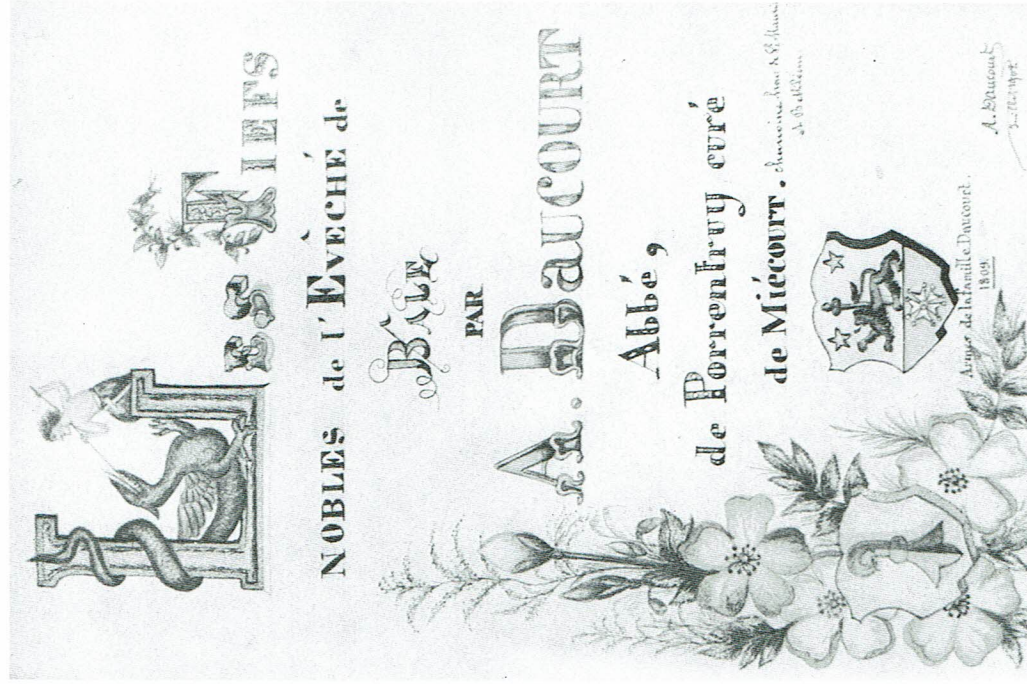 LES FIEFS
NOBLES de l'EVÊCHÉ de
BÂLE
PAR
A. DAUCOURT
Abbé,
de Porrentruy curé
de Miécourt. chanoine hon. de St Maurice
Armes de la famille Daucourt.
1809.
A. Daucourt